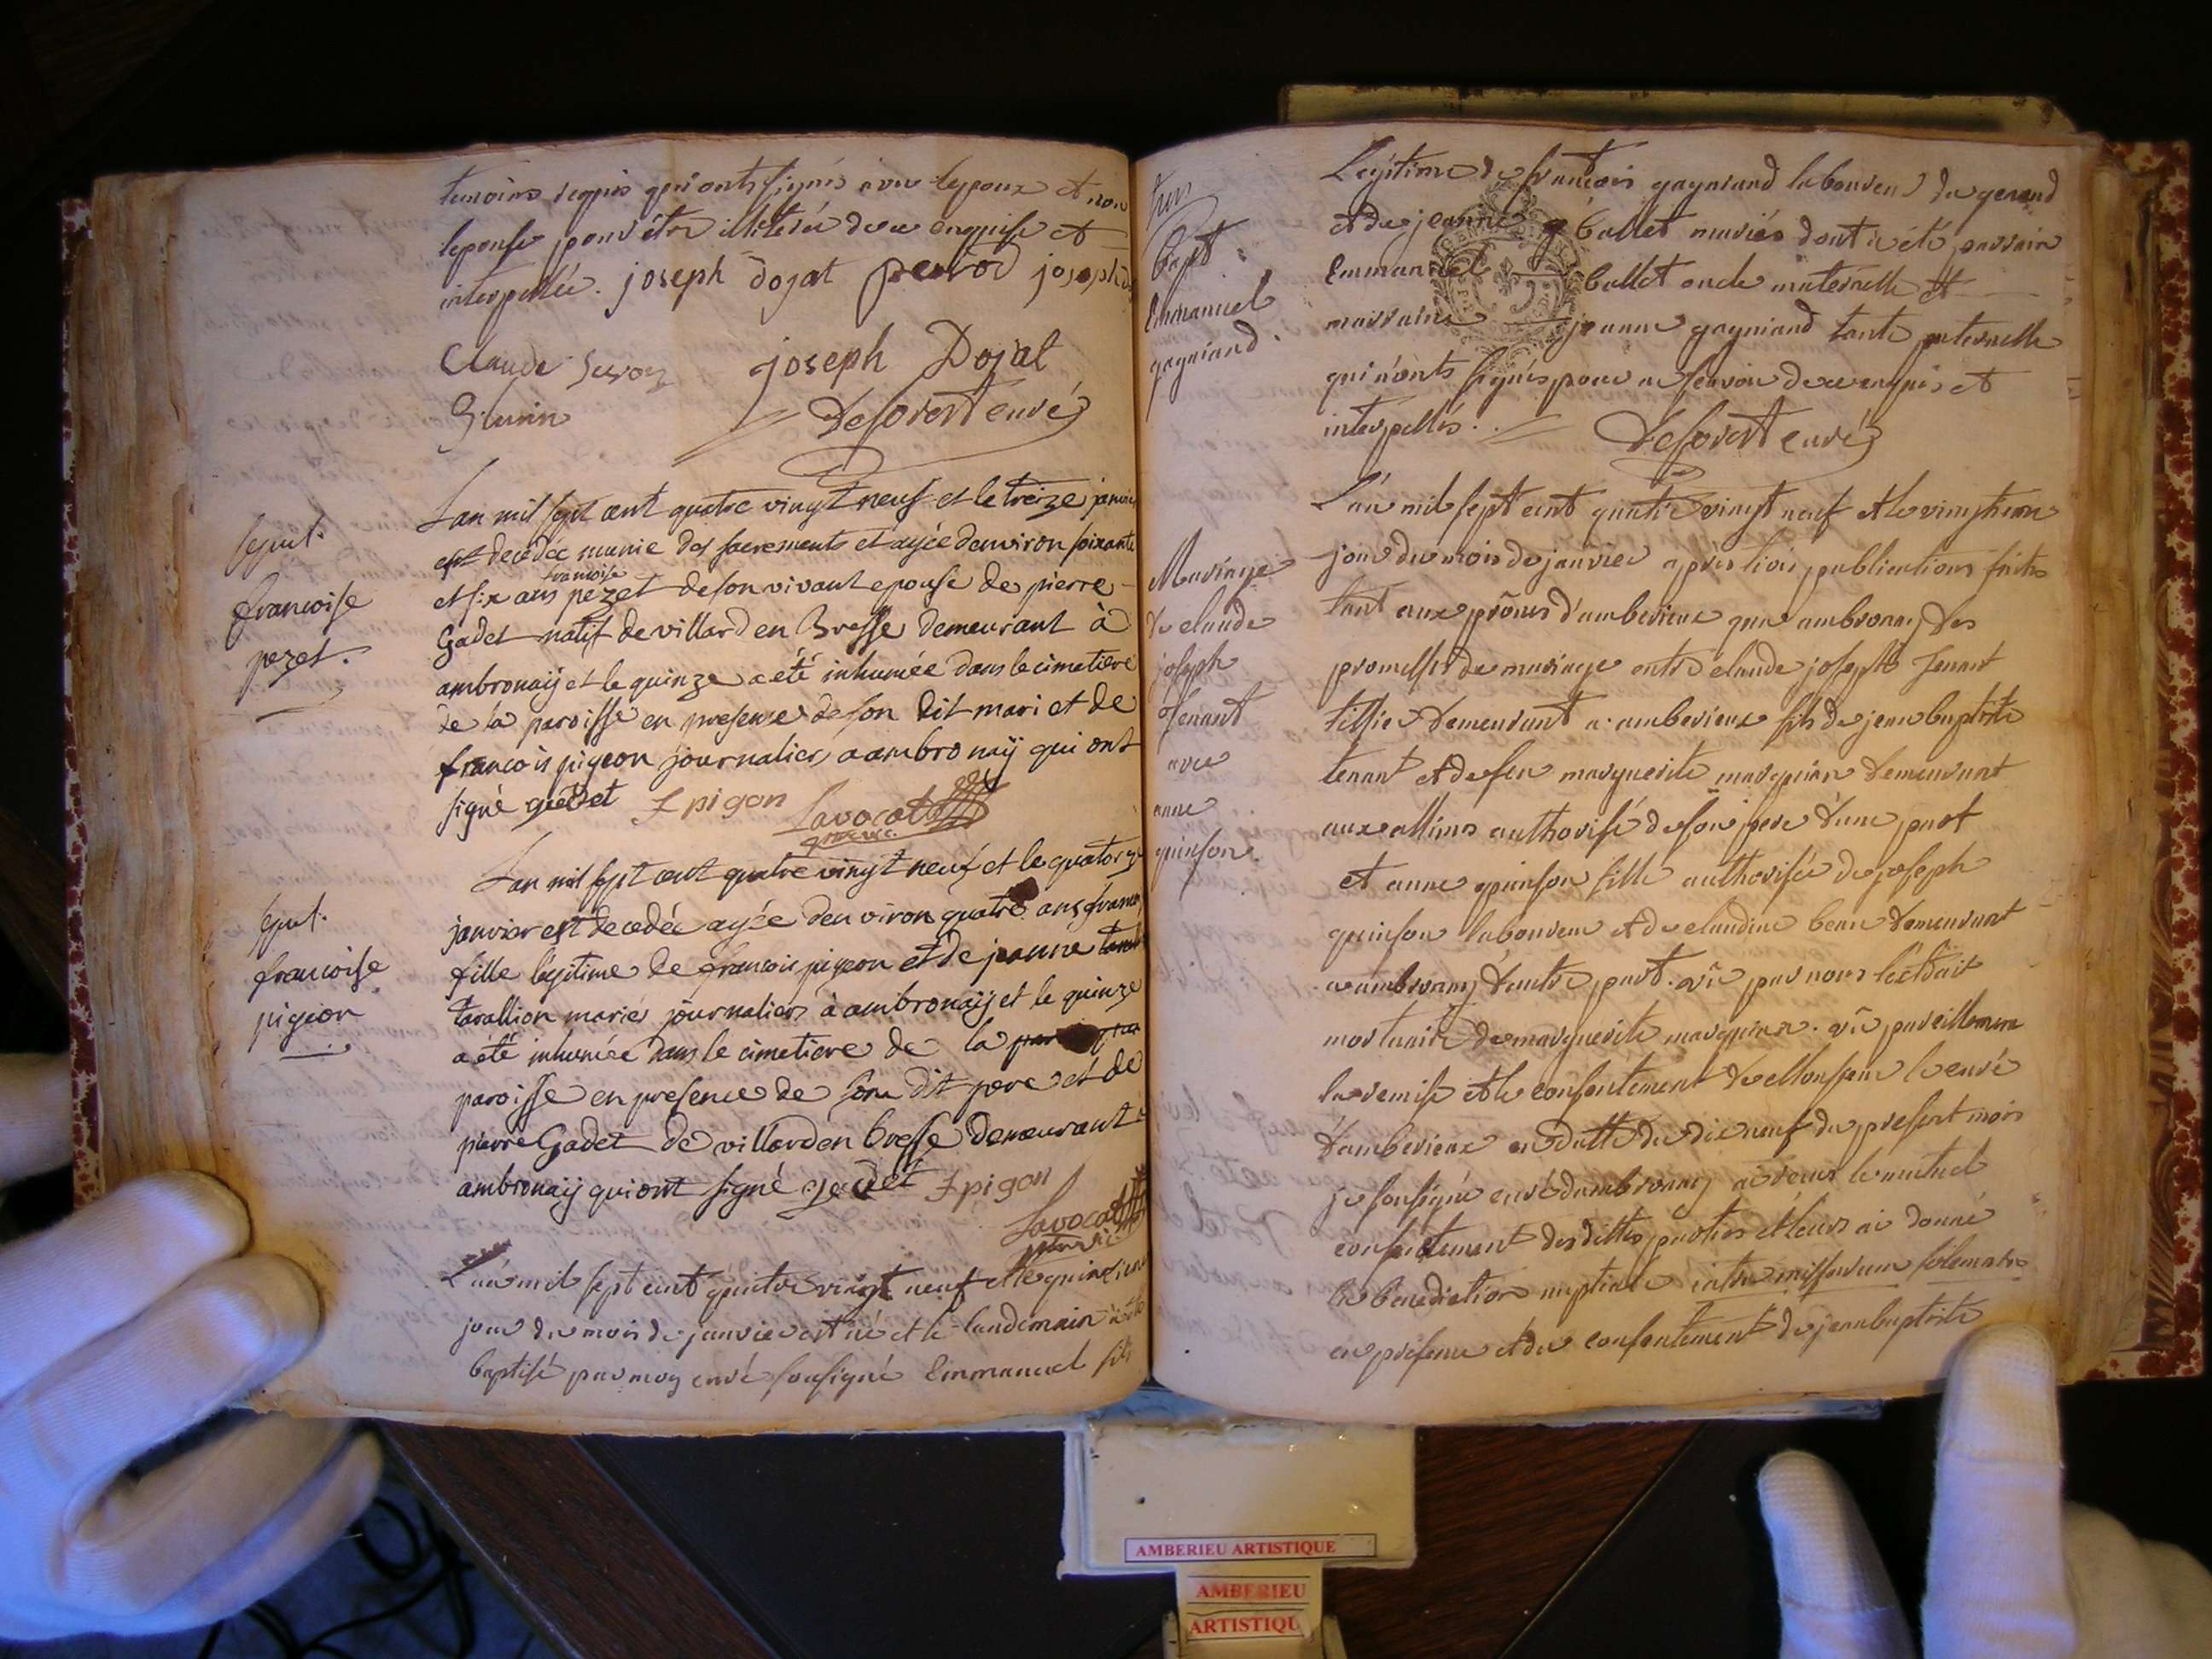 temoins requis qui onts signés avec lepoux et non
lepouse pour être illeterée de ce enquise et
interpellée. joseph dojat perrod joseph
Claude joseph Dojat
Deforest curé
Lan mil sept cent quatre vingt neuf et le treize janvier
sepul.
est decedée munie des sacrements et agée d'environ soixante
françoise
et six ans pezet de son vivant epouse de pierre
francoise
pezet.
Gadet natif de villard en Bresse demeurant à
ambronaÿ et le quinze a été inhumée dans le cimetiere
de la paroisse en presence de son dit mari et de
francois pigeon journalier a ambronaÿ qui ont
signé gadet f pigon Lavocat
vicaire
Lan mil sept cent quatre vingt neuf et le quatorze
sepul.
janvier est decedée agée denviron quatre ans
francoise
pigeon
fille legitime de francois pigeon et de jeanne
tavallion mariés journaliers à ambronaÿ et le quinze
a été inhumée dans le cimetiere de la
paroisse en presence de son dit pere et de
pierre Gadet de villard en bresse demeurant à
ambronaÿ qui ont signé gadet f pigon
Lavocat
vicaire
L'an mil sept cent quatre vingt neuf et le quinzieme
jour du mois de janvier est né et le landemain a été
baptisé par moy curé soussigné Emmanuel fils
Legitime de francois gagniand laboureur du gerand
et de jeanne ballet mariés dont a été parrain
Bapt
Emmanuel ballet oncle maternelle et
Emmanuel
gagniand.
marraine jeanne gagniand tante paternelle
qui n'onts signés pour ne sçavoir de ce enquis et
interpellés. Deforest curé
L'an mil sept cent quatre vingt neuf et le vingtieme
jour du mois de janvier après trois publications faites
Mariage
de claude
joseph
tenant
avec
anne
quinson.
tant aux prônes d'amberieux que ambronay des
promesses de mariage entre claude joseph tenant
tissier demeurant a amberieux fils de jean baptiste
tenant et de feu marguerite marquian demeurant
aux allimes authorisé de son pere d'une part
et anne quinson fille authorisée de joseph
quinson laboureur et de claudine demeurant
a ambronay d'autre part. vû par nous l'extrait
mortuaire de marguerite vû pareillement
la remise et le consentement de le curé
d'amberieux en datte du dix neuf du present mois
je soussigné curé dambronay ai recus le mutuel
consentement desdittes parties et leurs ai donné
la benediction nuptiale intra missarum solemnia
en presence et du consentement de jean baptiste
AMBERIEU ARTISTIQUE
AMBERIEU
ARTISTIQU